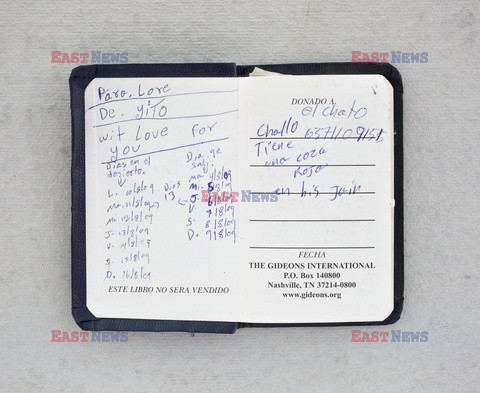 Para. Lore
De. YITO
wit Love for
you
Dias en el
desierto.
L. 10/8/09
Ma. 11/8/09
M. 12/8/09
J. 13/8/09
V. 14/8/09
S. 15/8/09
D. 16/8/09
Dias
13
Dia. qe
Sali.
Ma. 4/8/09
M. 5/8/09
J. 6/8/09
V. 7/8/09
S. 8/8/09
D. 9/8/09
ESTE LIBRO NO SERA VENDIDO
DONADO A
el chato
Challo
Tiene
una coza
Roja
en his Jair
FECHA
THE GIDEONS INTERNATIONAL
P.O. Box 140800
Nashville, TN 37214-0800
www.gideons.org
EAST NEWS
EAST NEWS
EAST NEWS
EAST NEWS
EAST NEWS
EAST NEWS